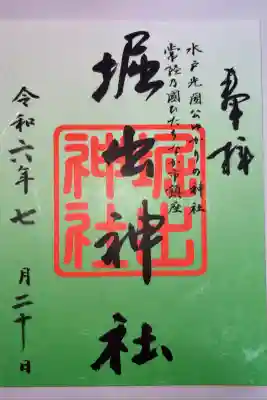 奉拝
水戸光圀公ゆかりの神社
常陸乃國ひたちなか市鎮座
堀出神社
堀出神社
令和六年七月二十日